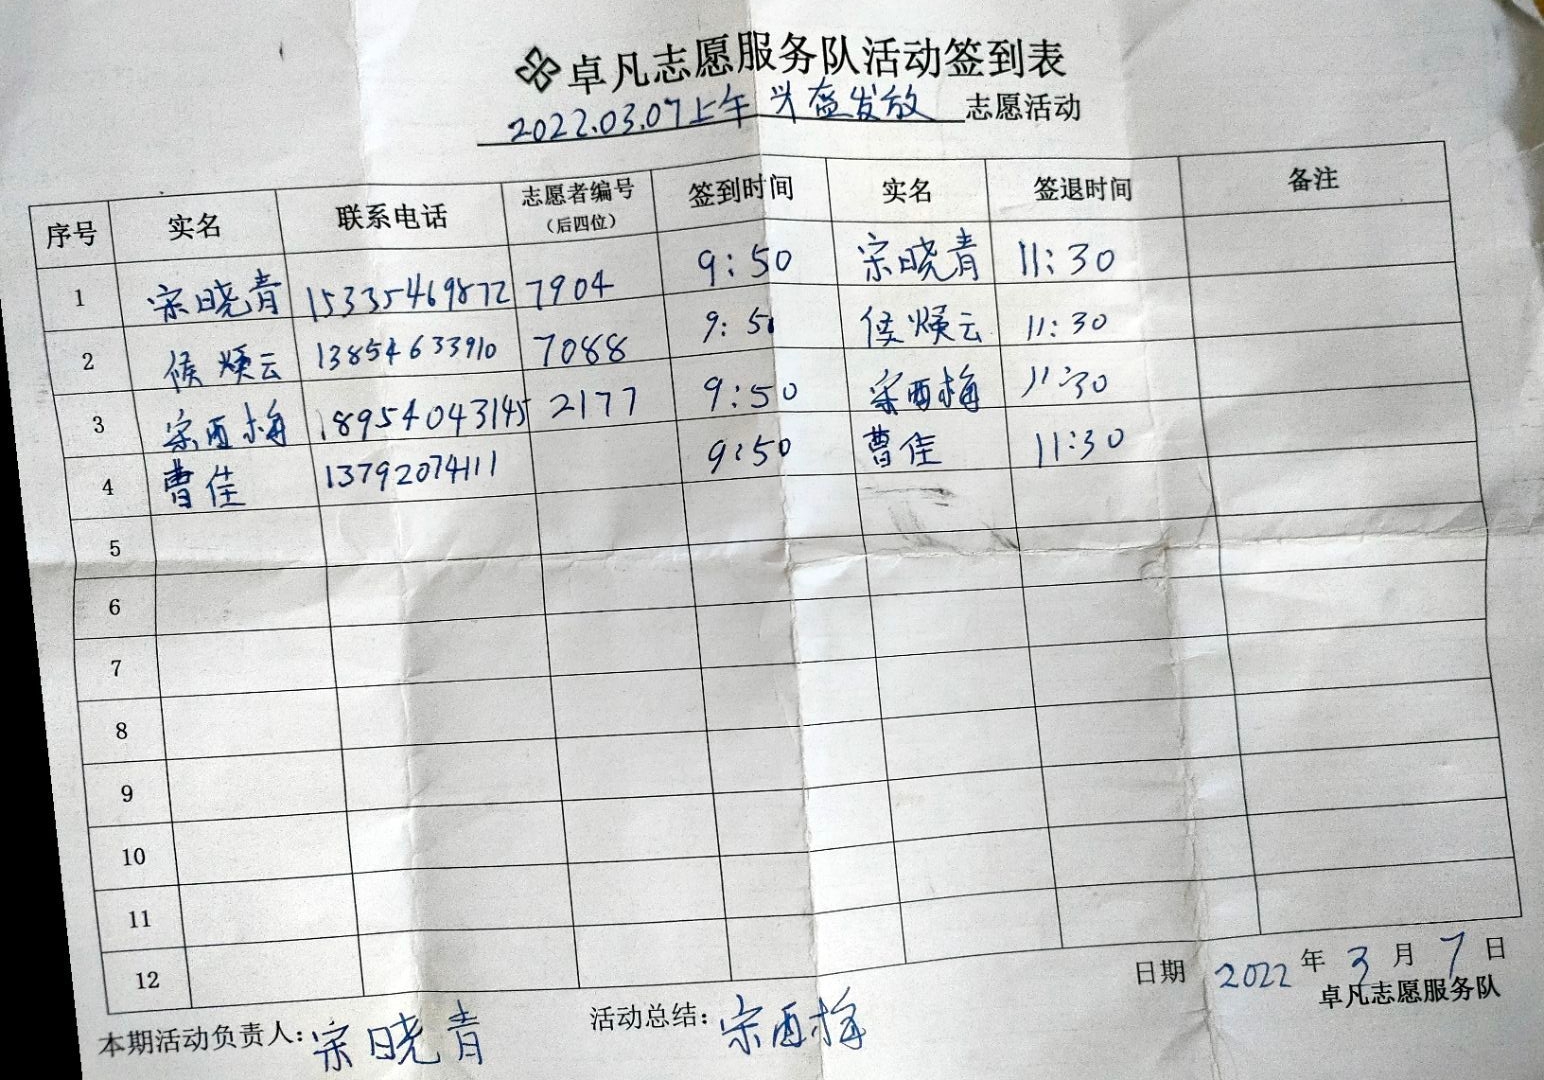 卓凡志愿服务队活动签到表
2022.03.07上午 兴盔发放 志愿活动
序号 实名 联系电话 志愿者编号（后四位） 签到时间 实名 签退时间 备注
1 宗晓青 15335469872 7904 9:50 宗晓青 11:30
2 侯煐云 13854633910 7088 9:50 侯煐云 11:30
3 宗西梅 18954043145 2177 9:50 宗西梅 11:30
4 曹佳 13792074111 9:50 曹佳 11:30
5
6
7
8
9
10
11
12
日期 2022 年 3 月 7 日
卓凡志愿服务队
本期活动负责人: 宗晓青 活动总结: 宗西梅